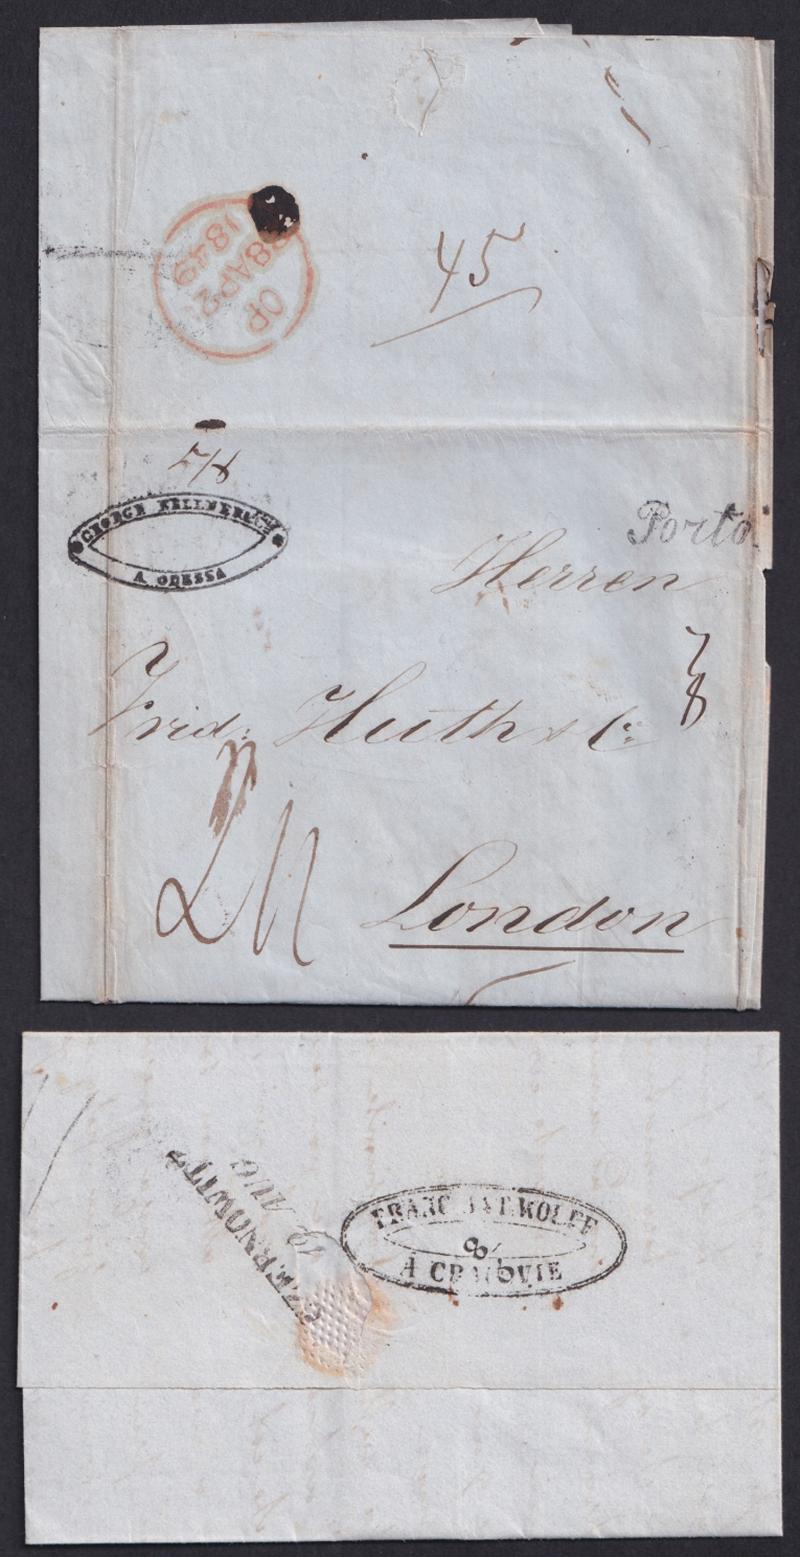 OP
28 AP 28
1849
45
GEORGE FELLMERICH
A ODESSA
Porto
Herren
7/8
Frid. Huth & Co
London
CZERNOWITZ
12. AUG
FRANC ANT. WOLFF
8/6
A CRACOVIE